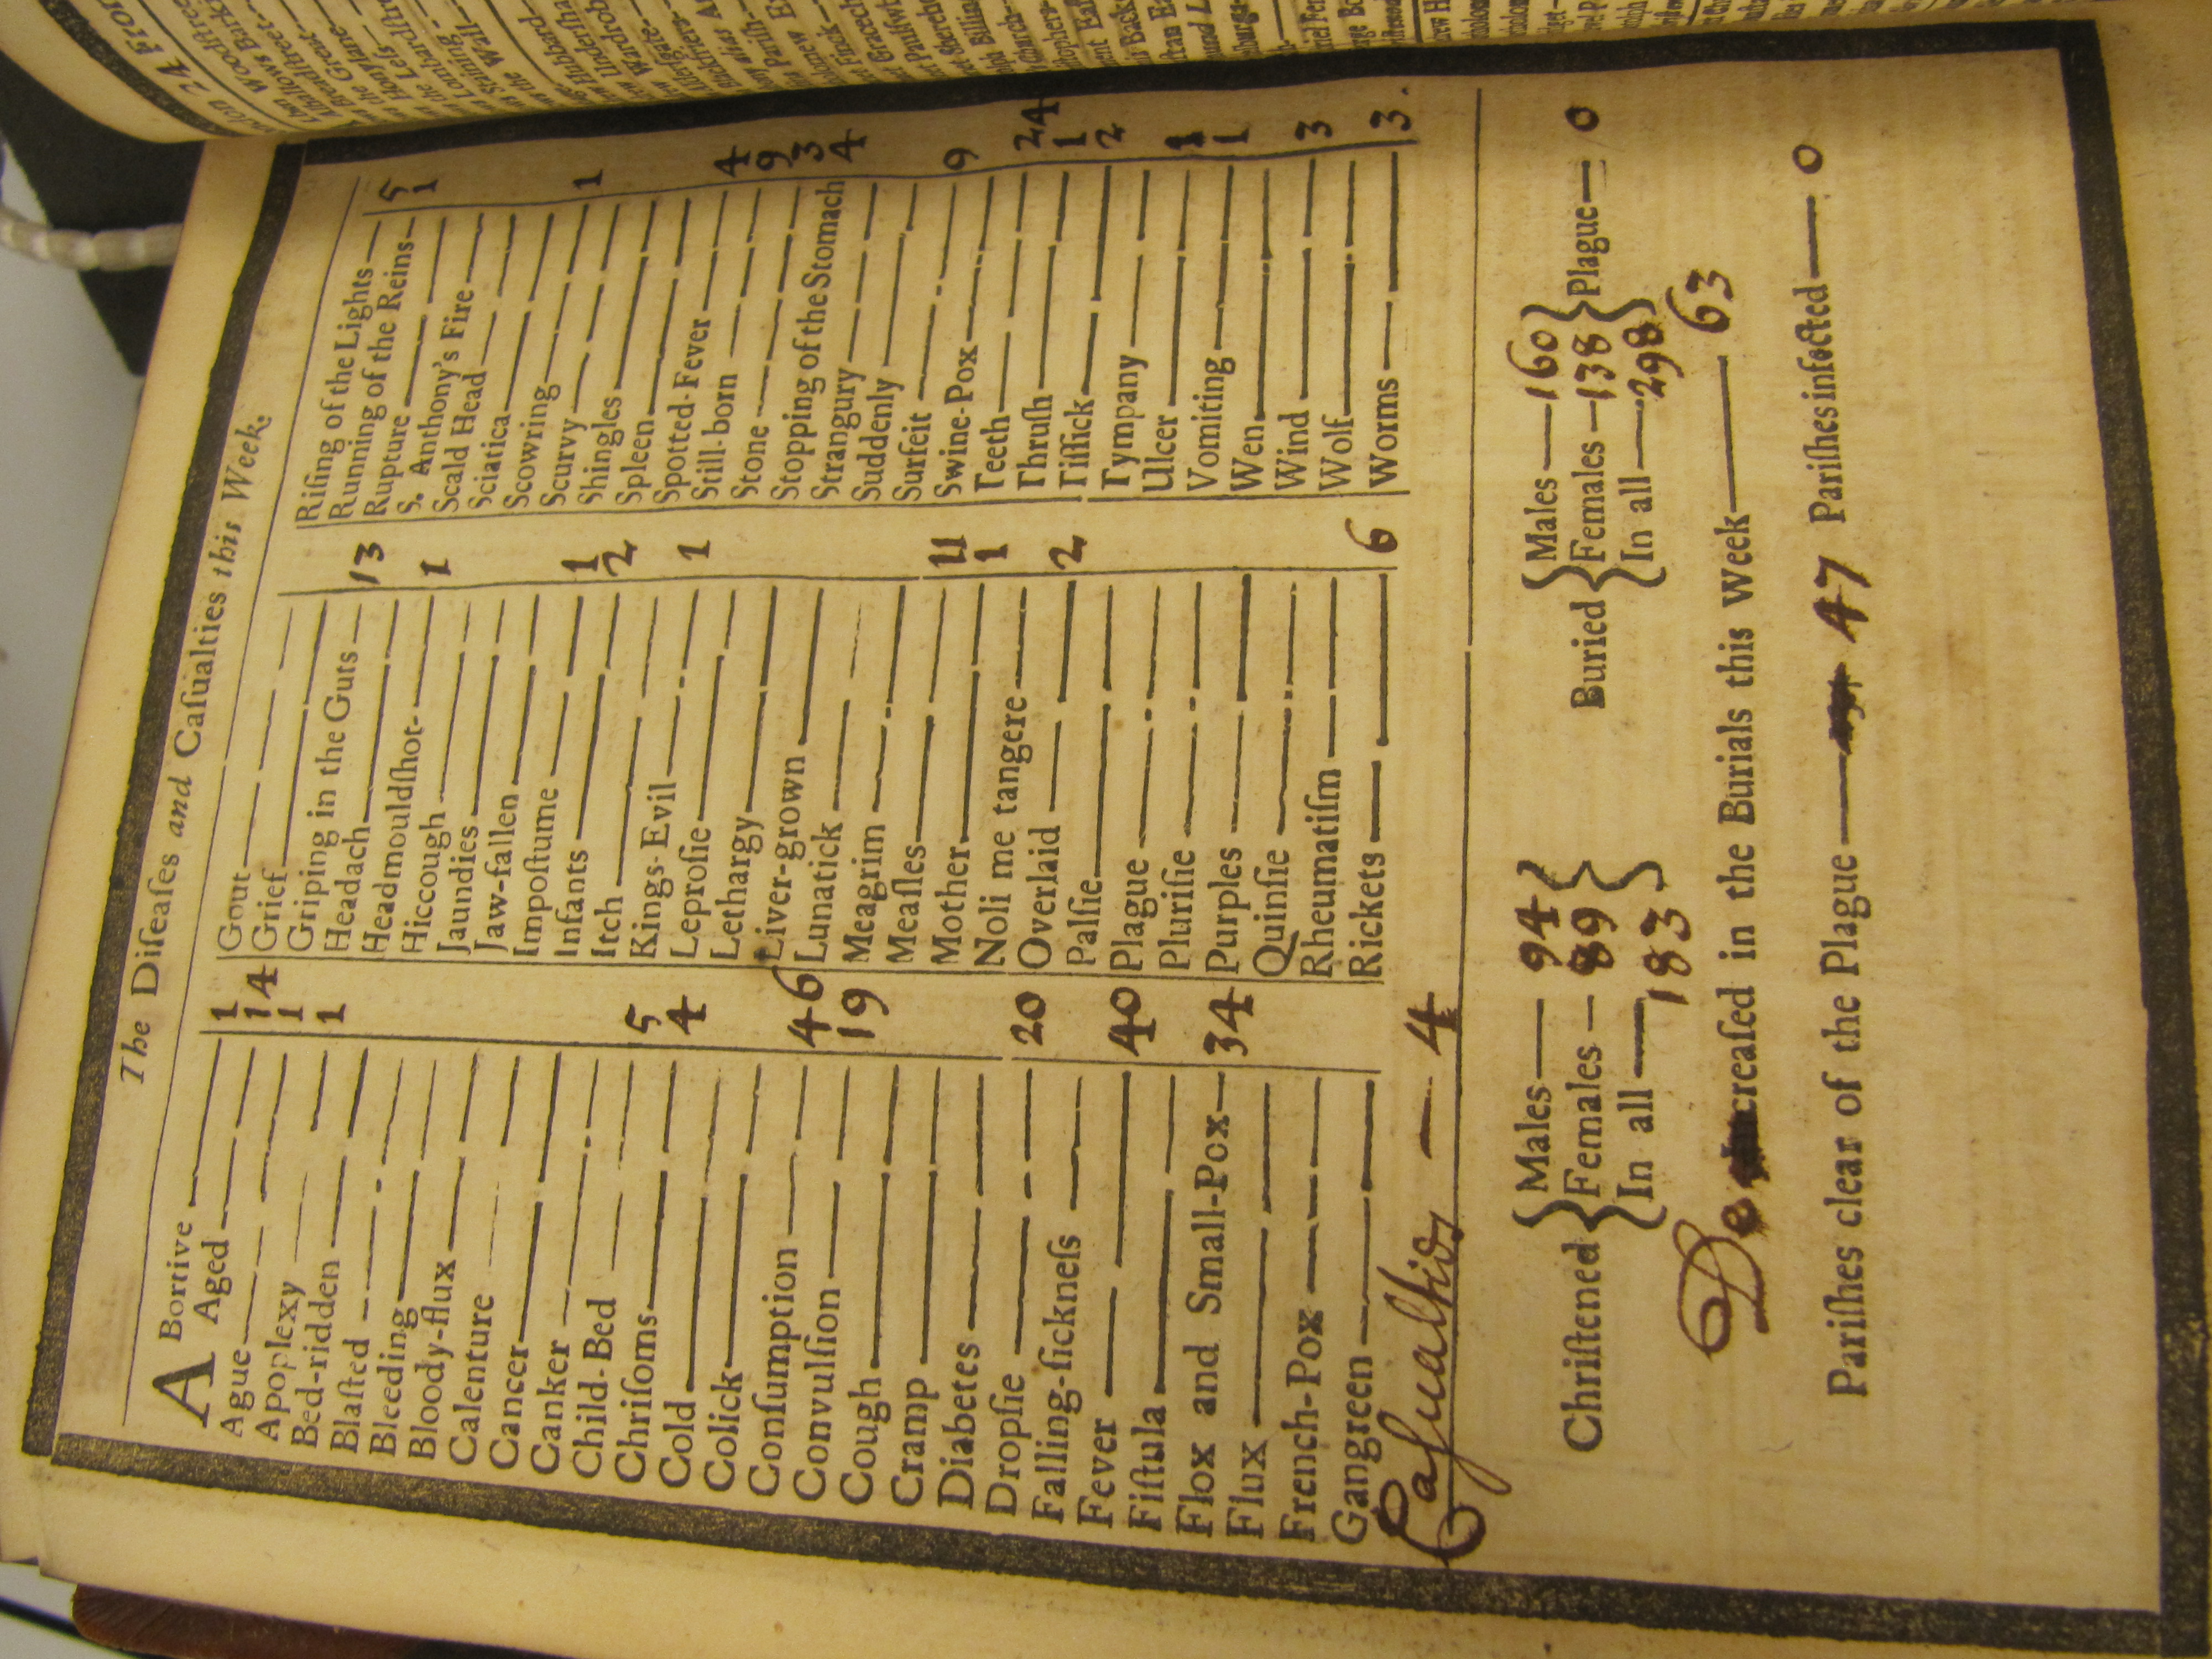 The Diſeaſes and Caſualties this Week.
ABortive 1
Aged 14
Ague 1
Apoplexy 1
Bed-ridden
Blaſted
Bleeding
Bloody-flux
Calenture
Cancer
Canker
Child-Bed 5
Chriſoms 4
Cold
Colick
Conſumption 46
Convulſion 19
Cough
Cramp
Diabetes
Dropſie 20
Falling-ſickneſs
Fever 40
Fiſtula
Flox and Small-Pox 34
Flux
French-Pox
Gangreen
Caſualties 4
Gout
Grief
Griping in the Guts 13
Headach
Headmouldſhot 1
Hiccough
Jaundies
Jaw-fallen
Impoſtume 1
Infants 2
Itch
Kings-Evil 1
Leproſie
Lethargy
Liver-grown
Lunatick
Meagrim
Meaſles 11
Mother 1
Noli me tangere
Overlaid 2
Palſie
Plague
Pluriſie
Purples
Quinſie
Rheumatiſm
Rickets 6
Riſing of the Lights 5
Running of the Reins 1
Rupture
S. Anthony's Fire
Scald Head
Sciatica
Scowring 1
Scurvy
Shingles
Spleen
Spotted-Fever 4
Still-born 9
Stone 3
Stopping of the Stomach 4
Strangury
Suddenly
Surfeit 9
Swine-Pox
Teeth 24
Thruſh 1
Tiſſick 2
Tympany
Ulcer 1
Vomiting 1
Wen
Wind 3
Wolf
Worms 3.
Chriſtened { Males 94
Females 89
In all 183 }
Buried { Males 160
Females 138
In all 298 } Plague 0
Decreaſed in the Burials this Week 63
Pariſhes clear of the Plague 47 Pariſhes infected 0